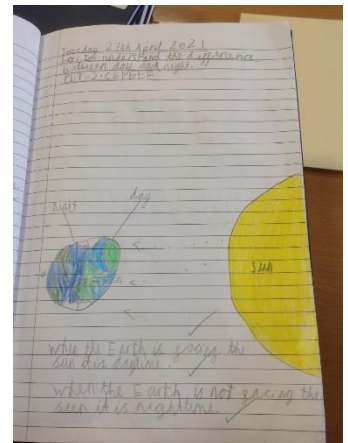 Tuesday 27th April 2021
LO: To understand the difference
between day and night.
night
day
SUN
when the Earth is facing the
sun it is daytime.
when the Earth is not facing the
sun it is nighttime.